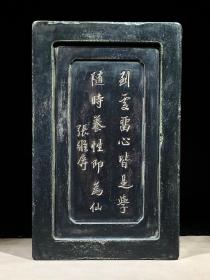 到處留心皆是學
隨時養性即為仙
張繼馨